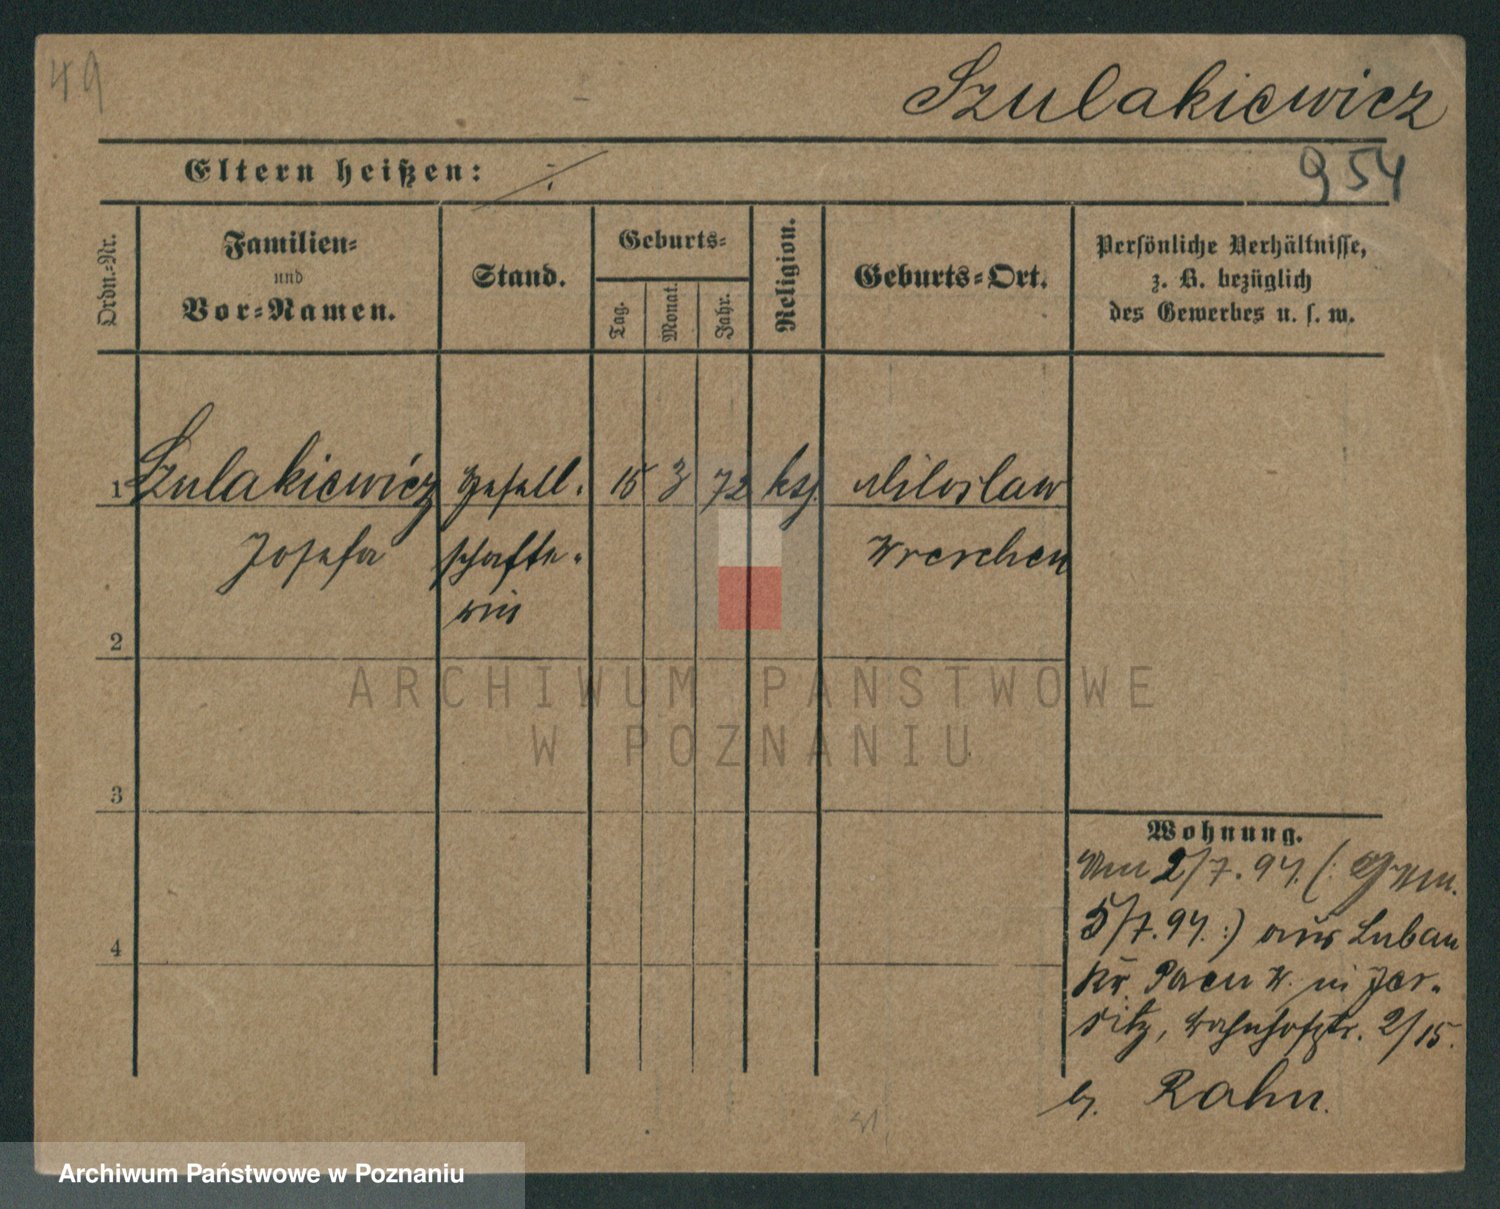 49
Szulakiewicz
Eltern heißen: ÷
954
Ordn.=Nr.
Familien=
und
Vor=Namen.
Stand.
Geburts=
Tag.
Monat.
Jahr.
Religion.
Geburts=Ort.
Persönliche Verhältnisse,
z. B. bezüglich
des Gewerbes u. s. w.
1 Szulakiewicz Gesell= 15 3 72 ktj. Miloslaw
Josefa schafte= Wreschen
rin
2
ARCHIWUM PAŃSTWOWE
W POZNANIU
3
4
Wohnung.
2/7. 94. (:
5/7. 94. :) aus Luban
Kr. Posen W. in Jer=
sitz, Bahnhofstr. 2/15.
b. Rahn.
Archiwum Państwowe w Poznaniu